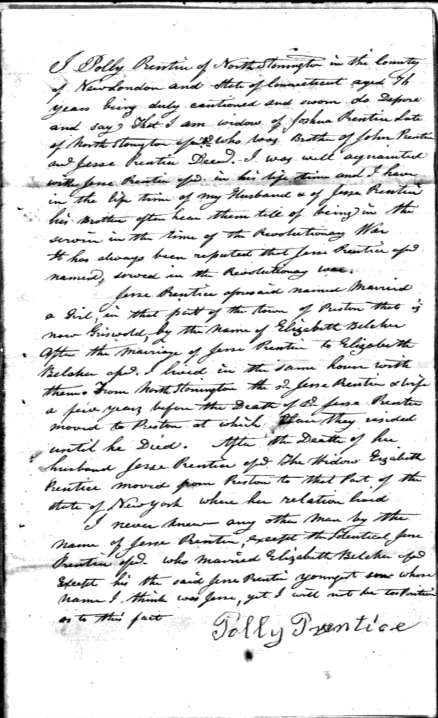 I Polly Prentice of North Stonington in the County
of New London and State of Connecticut aged 76
years being duly cautioned and sworn do Depose
and say, That I am widow of Joshua Prentice late
of North Stonington afsd who was Brother of John Prentice
and Jesse Prentice Decd. I was well acquainted
with Jesse Prentice afd. in his life time and I have
in the life time of my Husband & of Jesse Prentice
his Brother often hear them tell of being in the
service in the time of the Revolutionary War
It has always been reputed that Jesse Prentice afd
named, served in the Revolutionary war.
Jesse Prentice aforesaid named Married
a Girl, in that part of the town of Preston that is
now Griswold, by the Name of Elizabeth Belcher
After the marriage of Jesse Prentice to Elizabeth
Belcher afd. I lived in the same house with
them. From North Stonington the sd Jesse Prentice & wife
a few years before the Death of sd Jesse Prentice
moved to Preston at which Place they resided
until he Died. After the Death of her
husband Jesse Prentice afd. The Widow Elizabeth
Prentice moved from Preston to that Part of the
State of New York where her relation lived
I never knew any other Man by the
name of Jesse Prentice, except the Identical Jesse
Prentice afd. who married Elizabeth Belcher afd
Except his the said Jesse Prentice youngest son whose
name I think was Jesse, yet I will not be
as to this fact
Polly Prentice